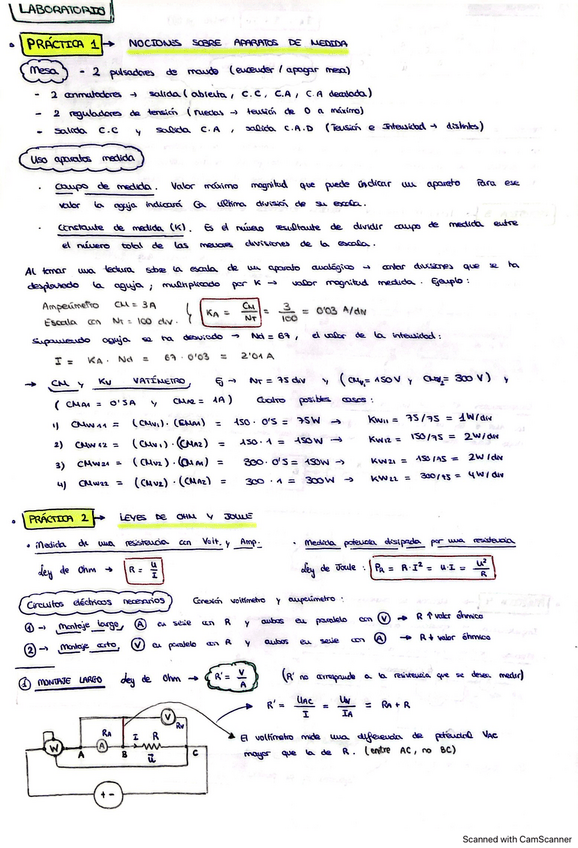 LABORATORIO
PRÁCTICA 1 → NOCIONES SOBRE APARATOS DE MEDIDA
Mesa - 2 pulsadores de mando (encender / apagar mesa)
- 2 conmutadores → salida (abierta, C.C, C.A, C.A desalada)
- 2 reguladores de tensión (ruedas → tensión de 0 a máximo)
- Salida C.C y salida C.A, salida C.A.D (Tensión e Intensidad → distintes)
Uso aparatos medida
· Campo de medida. Valor máximo magnitud que puede indicar un aparato Para ese
valor la aguja indicará la última división de su escala.
· Constante de medida (K). Es el número resultante de dividir campo de medida entre
el número total de las menores divisiones de la escala.
Al tomar una lectura sobre la escala de un aparato analógico → contar divisiones que se ha
desplazado la aguja, multiplicado por K → valor magnitud medida. Ejemplo:
Amperímetro CM = 3A
Escala con NT = 100 div. { KA = CM/NT = 3/100 = 0'03 A/div
Suponiendo aguja se ha desviado → Nd = 67, el valor de la intensidad:
I = KA · Nd = 67 · 0'03 = 2'01 A
→ CM y KW VATÍMETRO, Ej → NT = 75 div y (CMV1 = 150 V y CMV2 = 300 V) y
(CMA1 = 0'5A y CMA2 = 1A) Cuatro posibles casos:
1) CMW11 = (CMV1) · (CMA1) = 150 · 0'5 = 75W → KW11 = 75/75 = 1W/div
2) CMW12 = (CMV1) · (CMA2) = 150 · 1 = 150W → KW12 = 150/75 = 2W/div
3) CMW21 = (CMV2) · (CMA1) = 300 · 0'5 = 150W → KW21 = 150/75 = 2W/div
4) CMW22 = (CMV2) · (CMA2) = 300 · 1 = 300W → KW22 = 300/75 = 4W/div
PRÁCTICA 2 → LEYES DE OHM Y JOULE
· Medida de una resistencia con Volt. y Amp.
· Medida potencia disipada por una resistencia
Ley de Ohm → R = U/I
Ley de Joule: PR = R·I² = U·I = U²/R
Circuitos eléctricos necesarios Conexión voltímetro y amperímetro:
① → Montaje largo, A en serie con R y ambos en paralelo con V → R ↑ valor óhmico
② → Montaje corto, V en paralelo con R y ambos en serie con A → R ↓ valor óhmico
① MONTAJE LARGO Ley de Ohm → R' = V/A (R' no corresponde a la resistencia que se desea medir)
R' = UAC/I = UV/IA = RA + R
El voltímetro mide una diferencia de potencial VAC
mayor que la de R. (entre AC, no BC)
V RV
W A RA A B I R C
u
+ -
Scanned with CamScanner